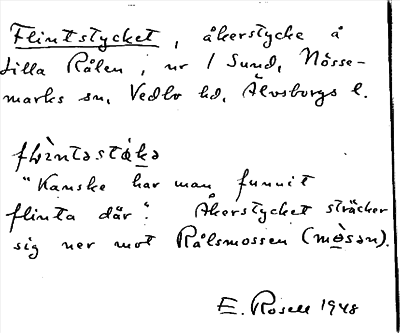 Flintstycket, åkerstycke å
Lilla Rålen, nr 1 Sund, Nösse-
marks sn, Vedbo hd, Älvsborgs l.
flìntəstákə
"Kanske har man funnit
flinta där". Åkerstycket sträcker
sig ner mot Rålsmossen (mòsən).
E. Rosell 1948